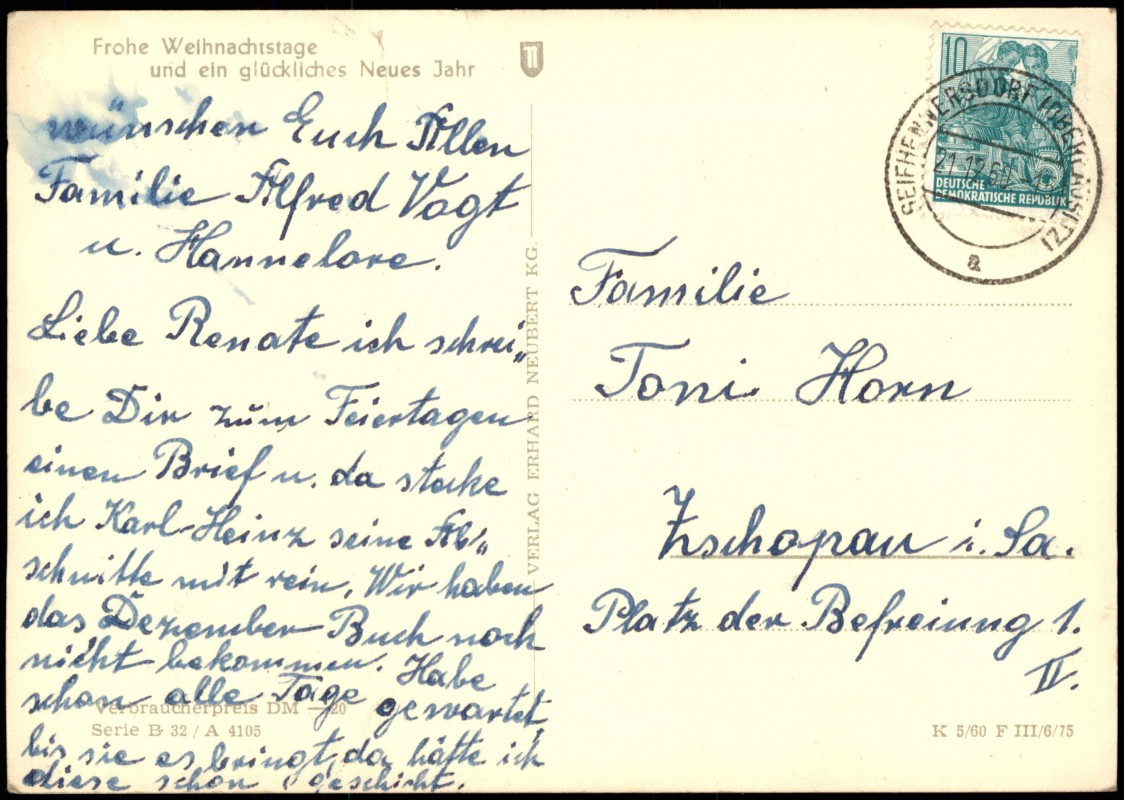 Frohe Weihnachtstage
und ein glückliches Neues Jahr
wünschen Euch Allen
Familie Alfred Vogt
u. Hannelore.
Liebe Renate ich schrei„
be Dir zum Feiertagen
einen Brief u. da stecke
ich Karl-Heinz seine Ab„
schnitte mit rein. Wir haben
das Dezember Buch noch
nicht bekommen. Habe
schon alle Tage gewartet,
bis sie es bringt, da hätte ich
diese schon geschickt.
Verbraucherpreis DM —,20
Serie B 32 / A 4105
VERLAG ERHARD NEUBERT KG.
10
DEUTSCHE
DEMOKRATISCHE REPUBLIK
SEIFHENNERSDORF (OBERLAUSITZ)
21.12.60
a
Familie
Toni Horn
Zschopau i. Sa.
Platz der Befreiung 1.
II.
K 5/60 F III/6/75